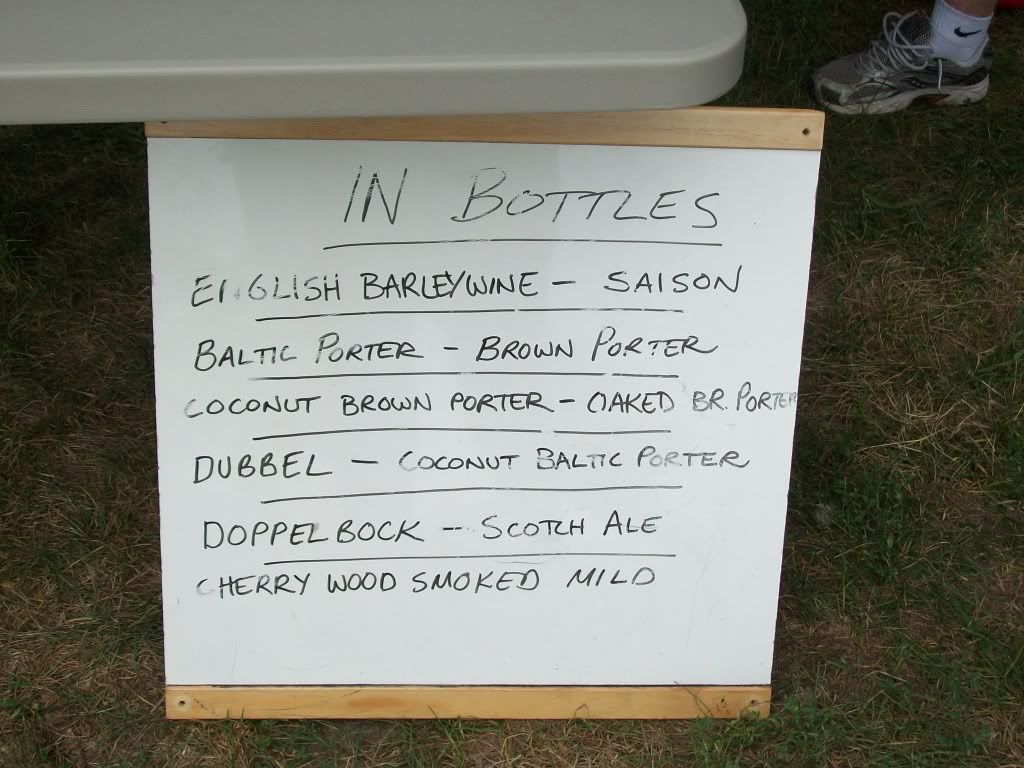 IN BOTTLES
ENGLISH BARLEYWINE - SAISON
BALTIC PORTER - BROWN PORTER
COCONUT BROWN PORTER - OAKED BR. PORTER
DUBBEL - COCONUT BALTIC PORTER
DOPPELBOCK -- SCOTCH ALE
CHERRY WOOD SMOKED MILD